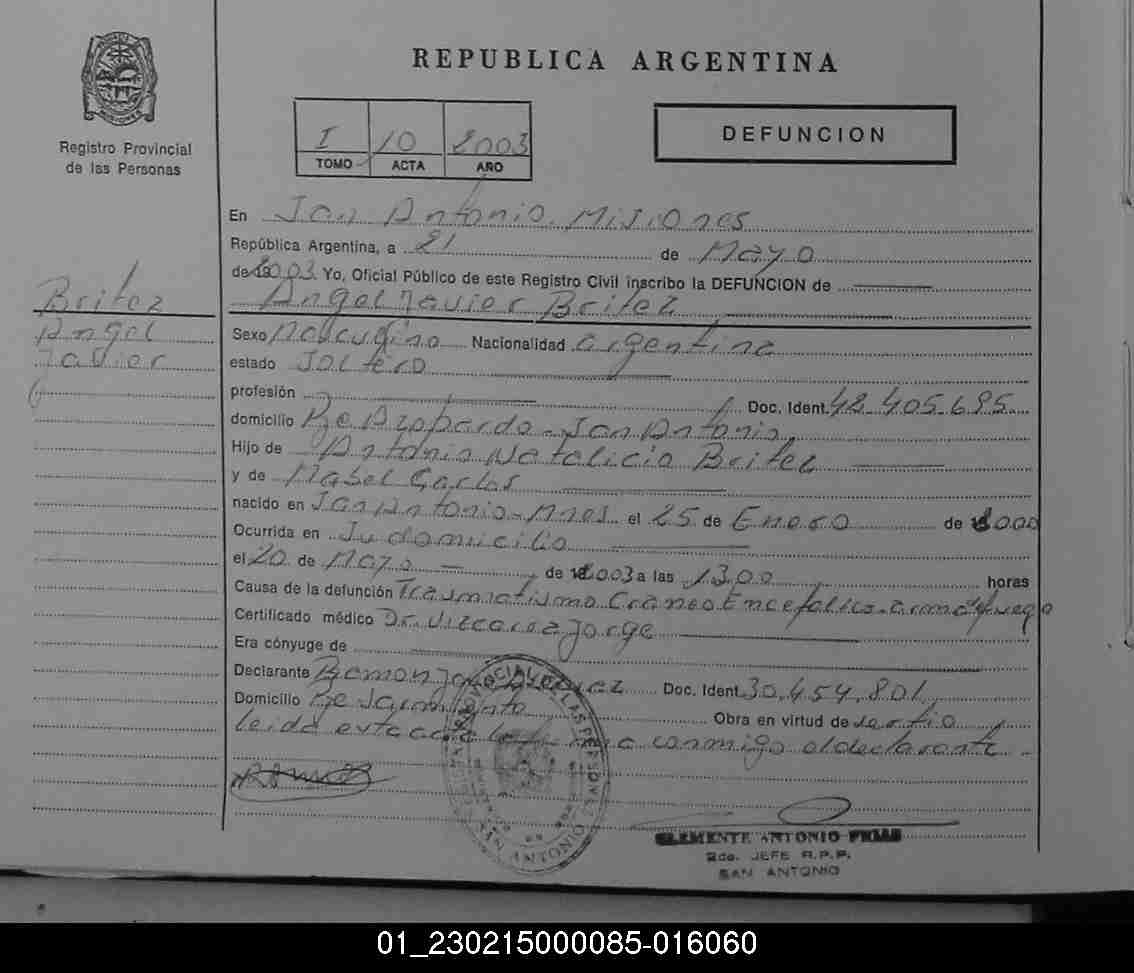 REPUBLICA ARGENTINA
Registro Provincial
de las Personas
I 10 2003
TOMO ACTA AÑO
DEFUNCION
En San Antonio. Misiones
República Argentina, a 21 de Mayo
de 2003 Yo, Oficial Público de este Registro Civil inscribo la DEFUNCION de
Angel Javier Britez
Britez
Angel
Javier
Sexo Masculino Nacionalidad argentina
estado Soltero
profesión Doc. Ident. 42.405.695
domicilio Pje Azopardo - San Antonio
Hijo de Antonio Natalicio Britez
y de Mabel Carlos
nacido en San Antonio - Mnes. el 25 de Enero de 2000
Ocurrida en Su domicilio
el 20 de Mayo de 2003 a las 13,00 horas
Causa de la defunción Traumatismo Craneo Encefalico - arma de fuego
Certificado médico Dr. Jorge
Era cónyuge de
Declarante Ramon Doc. Ident. 30.454.801
Domicilio Pje Sarmiento Obra en virtud de
leida esta acta conmigo el declarante
CLEMENTE ANTONIO FRIAS
2do. JEFE R.P.P.
SAN ANTONIO
01_230215000085-016060